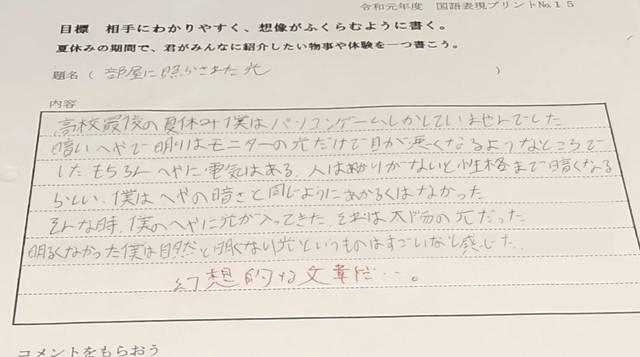 令和元年度 国語表現プリントNo.15
目標 相手にわかりやすく、想像がふくらむように書く。
夏休みの期間で、君がみんなに紹介したい物事や体験を一つ書こう。
題名（ 部屋に照らされた光 ）
内容
高校最後の夏休み僕はパソコンゲームしかしていませんでした
暗いへやで明りはモニターの光だけで目が悪くなるようなところで
した もちろんへやに電気はある、人はあかりがないと性格まで暗くなる
らしい、僕はへやの暗さと同じようにあかるくはなかった
そんな時、僕のへやに光が入ってきた、それは太陽の光だった
明るくなかった僕は自然と明るい光というものはすごいなと感じた、
幻想的な文章だ…。
コメントをもらおう